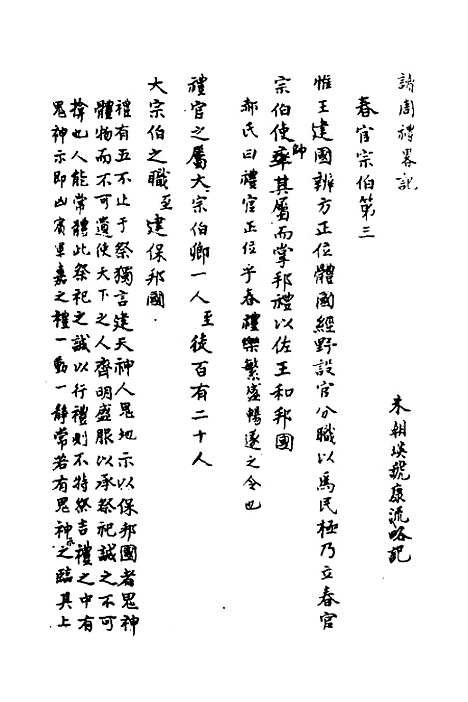 讀周禮畧記
朱朝瑛號康流畧記
春官宗伯第三
惟王建國辨方正位體國經野設官分職以爲民極乃立春官
宗伯使帥其屬而掌邦禮以佐王和邦國
鄭氏曰禮官正位乎春禮樂繁盛暢遂之令也
禮官之屬大宗伯卿一人至徒百有二十人
大宗伯之職至建保邦國
禮有五不止于祭獨言建天神人鬼地示以保邦國者鬼神
體物而不可遺使天下之人齊明盛服以承祭祀誠之不可
揜也人能常體此祭祀之誠以行禮則不特祭吉禮之中有
鬼神示即凶賓軍嘉之禮一動一靜常若有鬼神示之臨其上